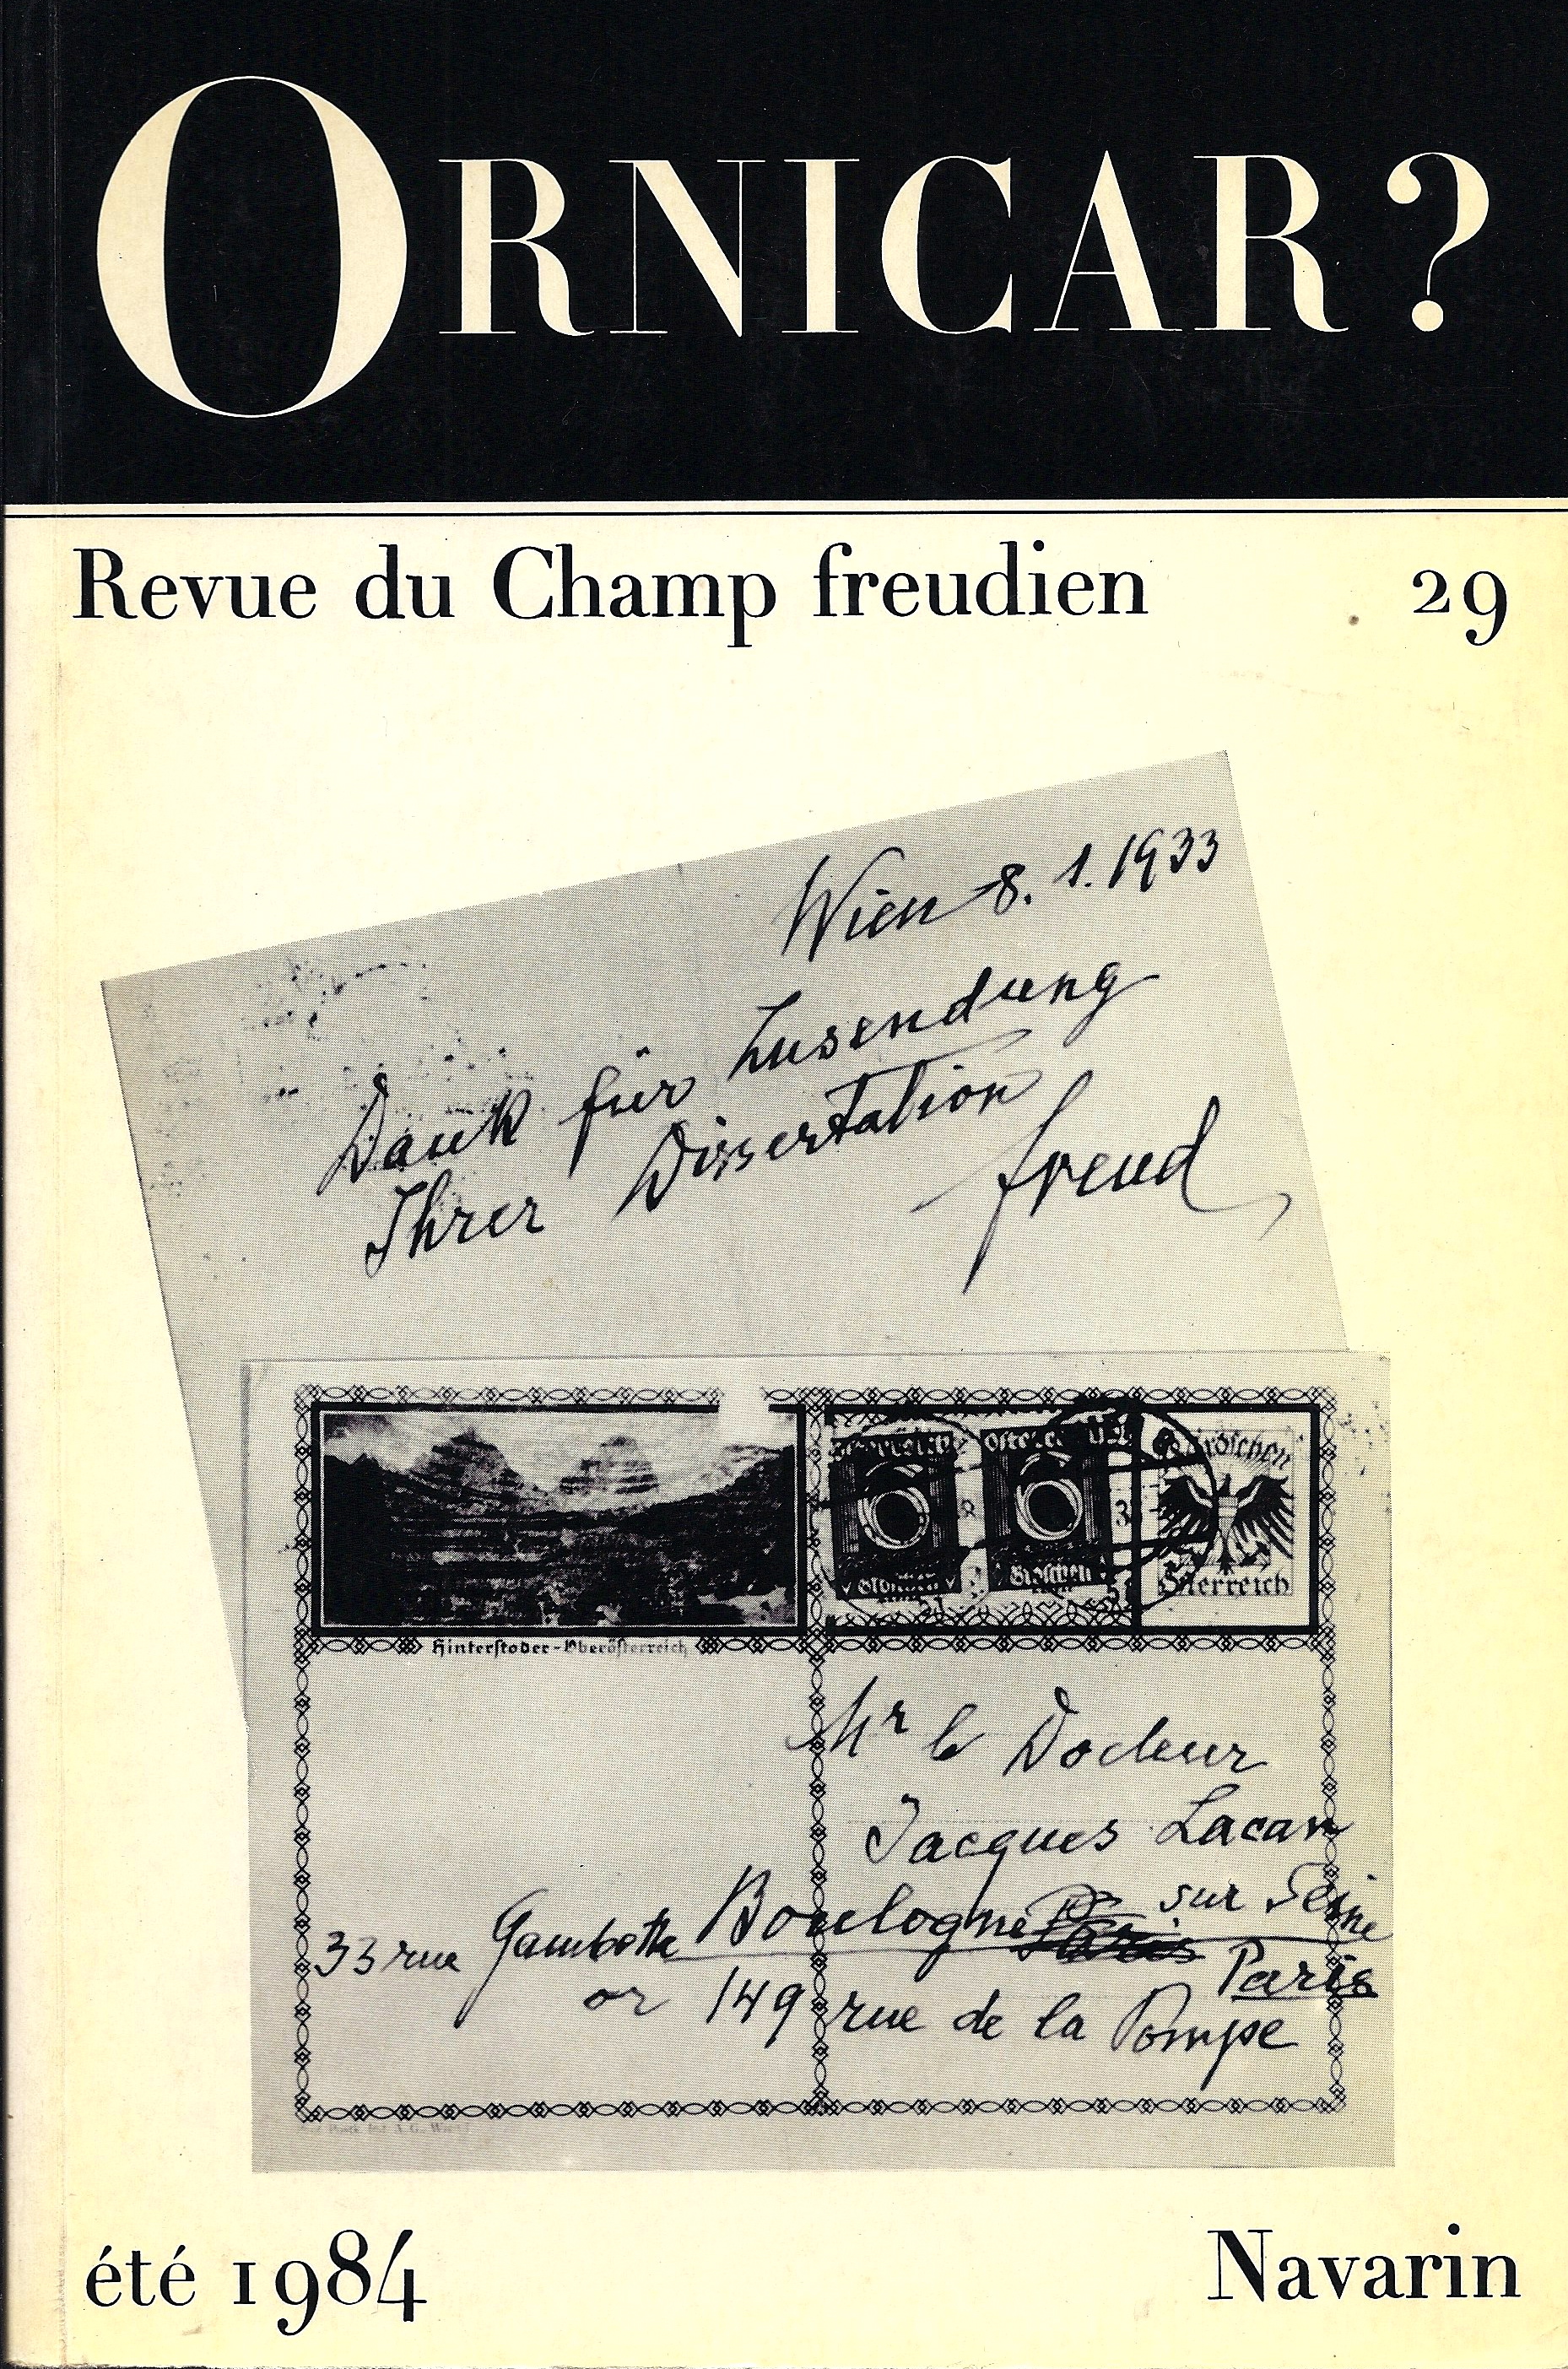 ORNICAR ?
Revue du Champ freudien 29
Wien 8. 1. 1933
Dank für Zusendung
Ihrer Dissertation
freud
Groschen
Österreich
Hinterstoder - Oberösterreich
Mr le Docteur
Jacques Lacan
Boulogne sur Seine
33 rue Gambetta Paris
or 149 rue de la Pompe
été 1984 Navarin